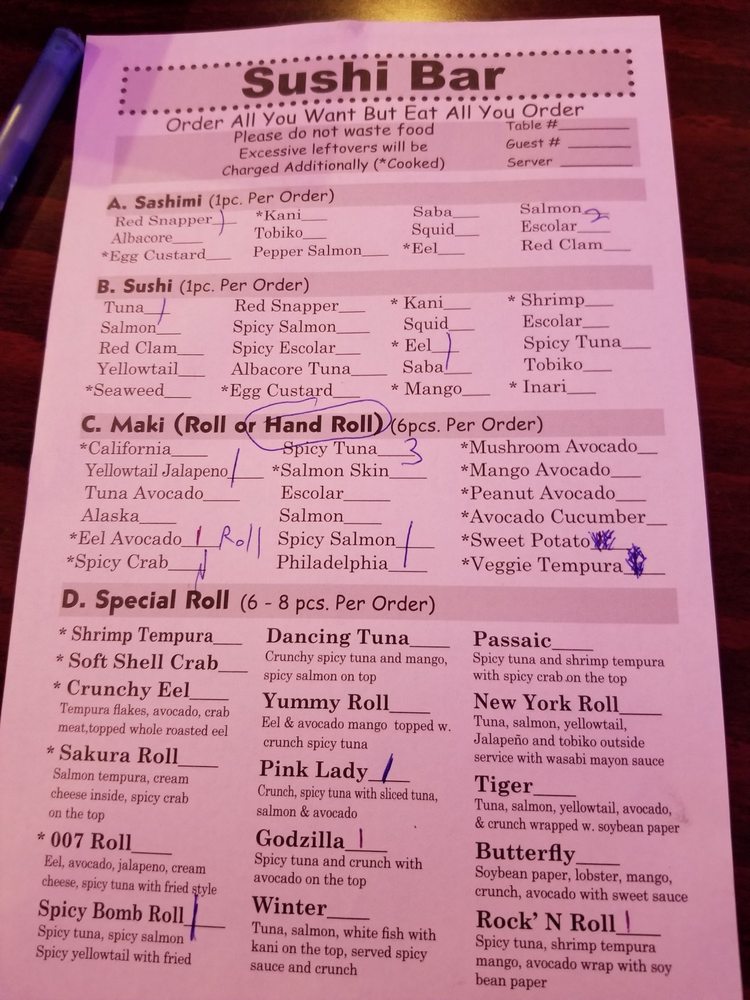 Sushi Bar
Order All You Want But Eat All You Order
Please do not waste food
Excessive leftovers will be
Charged Additionally (*Cooked)
Table #______
Guest # ______
Server ______
A. Sashimi (1pc. Per Order)
Red Snapper 1 *Kani___ Saba___ Salmon 2
Albacore___ Tobiko___ Squid___ Escolar___
*Egg Custard___ Pepper Salmon___ *Eel___ Red Clam___
B. Sushi (1pc. Per Order)
Tuna 1 Red Snapper___ * Kani___ * Shrimp___
Salmon___ Spicy Salmon___ Squid___ Escolar___
Red Clam___ Spicy Escolar___ * Eel 1 Spicy Tuna___
Yellowtail___ Albacore Tuna___ Saba___ Tobiko___
*Seaweed___ *Egg Custard___ * Mango___ * Inari___
C. Maki (Roll or Hand Roll) (6pcs. Per Order)
*California___ Spicy Tuna 3 *Mushroom Avocado__
Yellowtail Jalapeno 1 *Salmon Skin___ *Mango Avocado___
Tuna Avocado___ Escolar___ *Peanut Avocado___
Alaska___ Salmon___ *Avocado Cucumber__
*Eel Avocado 1 Roll Spicy Salmon 1 *Sweet Potato
*Spicy Crab Philadelphia___ *Veggie Tempura
D. Special Roll (6 - 8 pcs. Per Order)
* Shrimp Tempura___
* Soft Shell Crab___
* Crunchy Eel____
Tempura flakes, avocado, crab
meat,topped whole roasted eel
* Sakura Roll____
Salmon tempura, cream
cheese inside, spicy crab
on the top
* 007 Roll____
Eel, avocado, jalapeno, cream
cheese, spicy tuna with fried style
Spicy Bomb Roll 1
Spicy tuna, spicy salmon
Spicy yellowtail with fried
Dancing Tuna____
Crunchy spicy tuna and mango,
spicy salmon on top
Yummy Roll____
Eel & avocado mango topped w.
crunch spicy tuna
Pink Lady 1
Crunch, spicy tuna with sliced tuna,
salmon & avocado
Godzilla 1
Spicy tuna and crunch with
avocado on the top
Winter____
Tuna, salmon, white fish with
kani on the top, served spicy
sauce and crunch
Passaic____
Spicy tuna and shrimp tempura
with spicy crab on the top
New York Roll____
Tuna, salmon, yellowtail,
Jalapeño and tobiko outside
service with wasabi mayon sauce
Tiger____
Tuna, salmon, yellowtail, avocado,
& crunch wrapped w. soybean paper
Butterfly____
Soybean paper, lobster, mango,
crunch, avocado with sweet sauce
Rock' N Roll 1
Spicy tuna, shrimp tempura
mango, avocado wrap with soy
bean paper